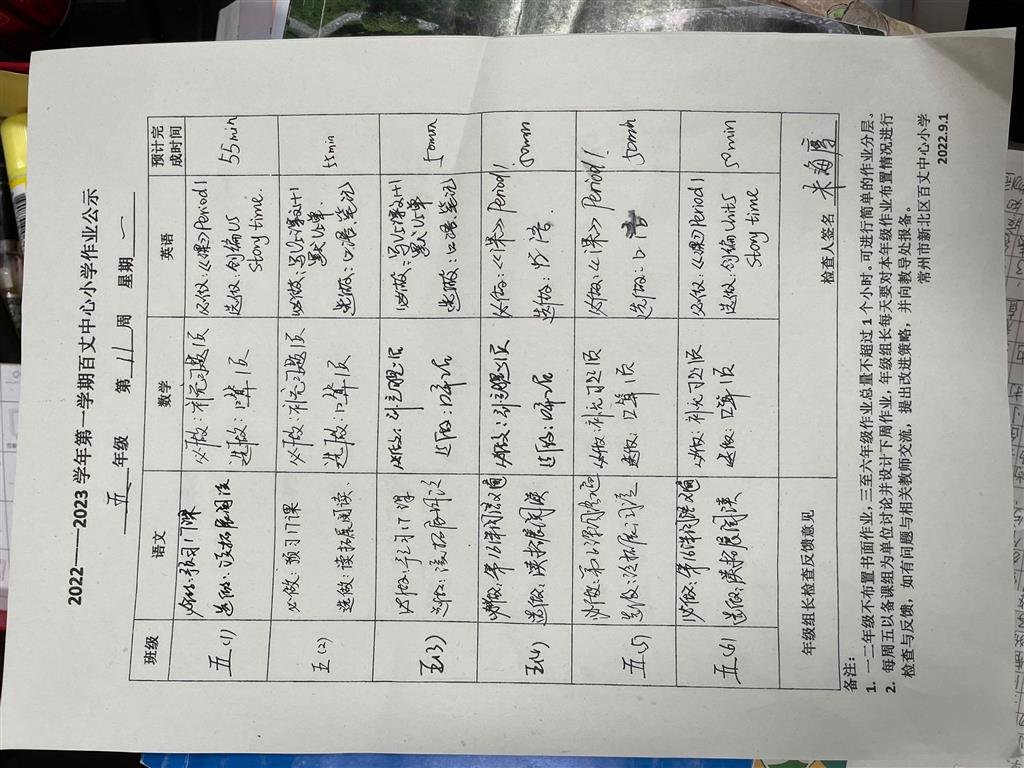 2022——2023学年第一学期百丈中心小学作业公示
五 年级 第 11 周 星期 一
班级 语文 数学 英语 预计完成时间
五(1)
必做:预习17课
选做:读拓展阅读
必做:补充习题1页
选做:口算1页
必做:《课》Period1
选做:创编U5
Story time.
55min
五(2)
必做:预习17课
选做:读拓展阅读.
必做:补充习题1页
选做:口算1页
必做:
默U5单
选做:口语笔记
55min
五(3)
必做:预习17课
选做:读拓展阅读
必做:
选做:口算
必做:
默U5单
选做:口语笔记
50min
五(4)
必做:第16课阅读
选做:读拓展阅读
必做:
选做:口算
必做:《课》Period1
选做:
50min
五(5)
必做:第16课阅读
选做:读拓展阅读
必做:补充习题1页
选做:口算1页
必做:《课》Period1
选做:口语
50min
五(6)
必做:第16课阅读
选做:读拓展阅读
必做:补充习题1页
选做:口算1页
必做:《课》Period1
选做:创编Unit5
Story time
50min
年级组长检查反馈意见
检查人签名
备注:
1. 一二年级不布置书面作业,三至六年级作业总量不超过1个小时。可进行简单的作业分层。
2. 每周五以备课组为单位讨论并设计下周作业,年级组长每天要对本年级作业布置情况进行
检查与反馈,如有问题与相关教师交流,提出改进策略,并向教导处报备。
常州市新北区百丈中心小学
2022.9.1